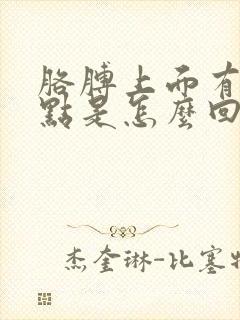 胳膊上面有
點是怎麼回
杰奎琳-比塞特